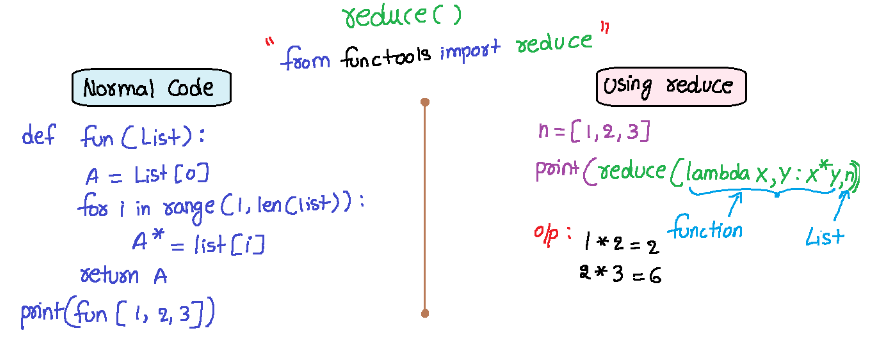 reduce()
"from functools import reduce"
Normal Code
def fun (List):
A = List [0]
for i in range (1, len(list)):
A* = list [i]
return A
print(fun [1, 2, 3])
Using reduce
n = [1, 2, 3]
print(reduce(lambda x, y : x*y, n))
function
List
o/p : 1 * 2 = 2
2 * 3 = 6